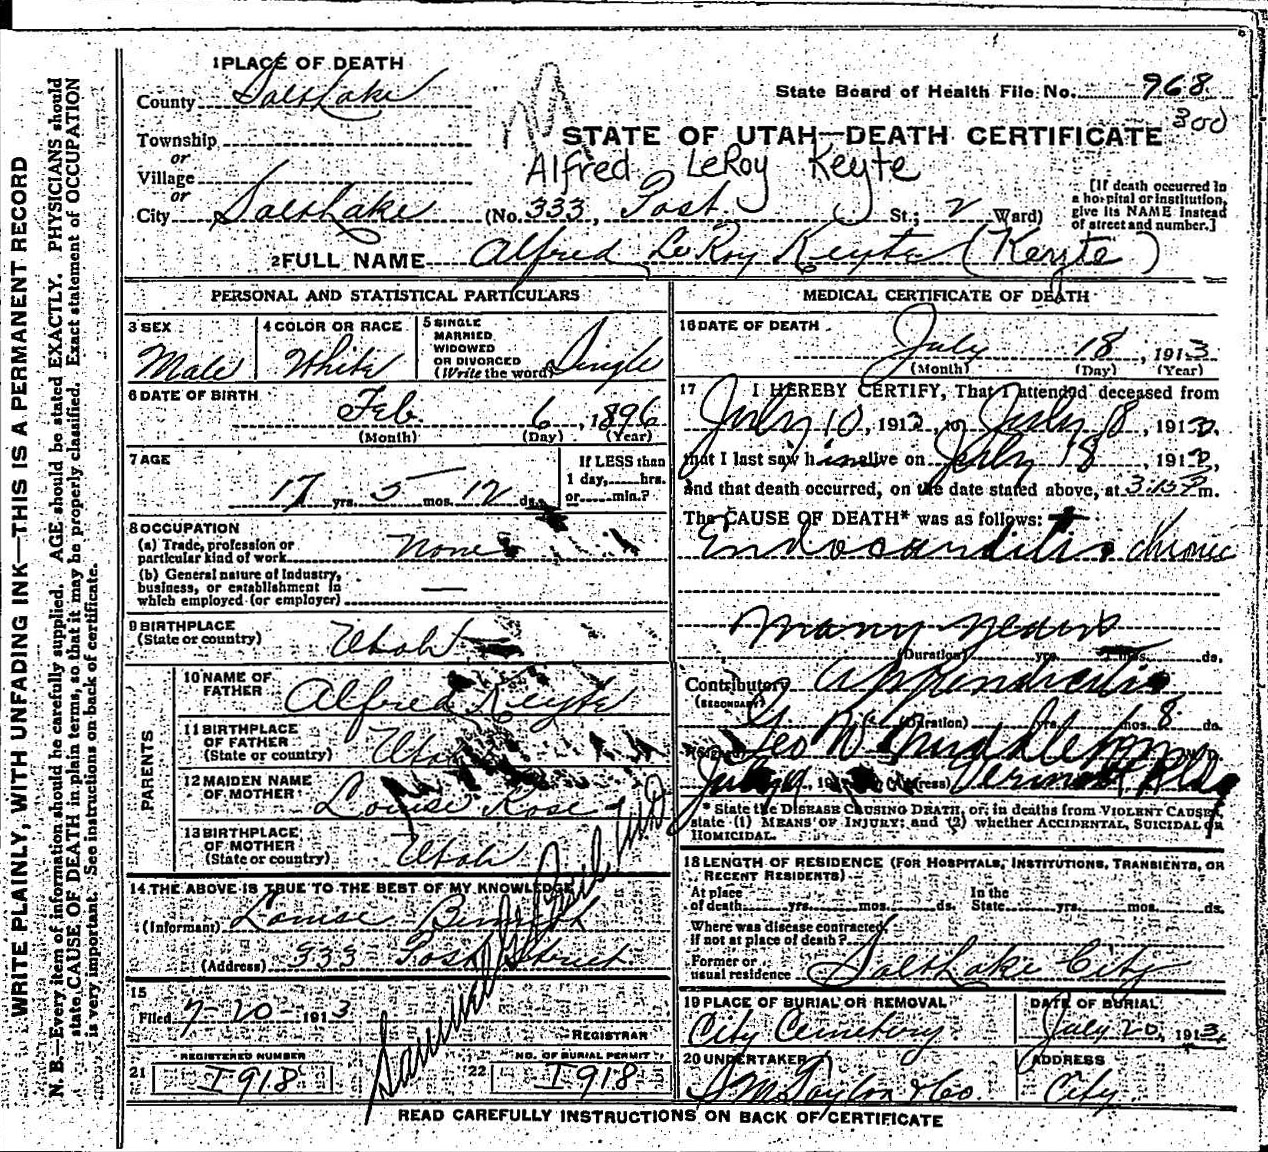 WRITE PLAINLY, WITH UNFADING INK—THIS IS A PERMANENT RECORD
N. B.—Every item of information should be carefully supplied. AGE should be stated EXACTLY. PHYSICIANS should
state CAUSE OF DEATH in plain terms, so that it may be properly classified. Exact statement of OCCUPATION
is very important. See instructions on back of certificate.
1 PLACE OF DEATH
County Salt Lake
State Board of Health File No. 968
300
Township
or
STATE OF UTAH—DEATH CERTIFICATE
Village
or
Alfred LeRoy Keyte
City Salt Lake (No. 333, Post St; 2 Ward)
[If death occurred in
a hospital or institution,
give its NAME instead
of street and number.]
2 FULL NAME Alfred LeRoy Keyte (Keyte)
PERSONAL AND STATISTICAL PARTICULARS
3 SEX
Male
4 COLOR OR RACE
White
5 SINGLE
MARRIED
WIDOWED
OR DIVORCED
(Write the word) Single
6 DATE OF BIRTH
Feb 6, 1896
(Month) (Day) (Year)
7 AGE
17 yrs. 5 mos. 12 ds.
If LESS than
1 day, hrs.
or min.?
8 OCCUPATION
(a) Trade, profession or
particular kind of work None
(b) General nature of industry,
business, or establishment in
which employed (or employer) —
9 BIRTHPLACE
(State or country) Utah
PARENTS
10 NAME OF
FATHER Alfred Keyte
11 BIRTHPLACE
OF FATHER
(State or country) Utah
12 MAIDEN NAME
OF MOTHER Louise Rose
13 BIRTHPLACE
OF MOTHER
(State or country) Utah
14 THE ABOVE IS TRUE TO THE BEST OF MY KNOWLEDGE
(Informant) Louise
(Address) 333 Post Street
15
Filed 7-20-1913
REGISTRAR
Samuel G. Paul MD
21 REGISTERED NUMBER
I918
22 NO. OF BURIAL PERMIT
I918
MEDICAL CERTIFICATE OF DEATH
16 DATE OF DEATH
July 18, 1913
(Month) (Day) (Year)
17 I HEREBY CERTIFY, That I attended deceased from
July 10, 1913, to July 18, 1913,
that I last saw him alive on July 18, 1913,
and that death occurred, on the date stated above, at 3:15 P m.
The CAUSE OF DEATH* was as follows:
Endocarditis chronic
many years
(Duration) yrs. mos. ds.
Contributory Appendicitis
(SECONDARY)
(Duration) yrs. mos. 8 ds.
Geo W
July 191 (Address) Vermont Bldg
* State the DISEASE CAUSING DEATH, or, in deaths from VIOLENT CAUSES,
state (1) MEANS OF INJURY; and (2) whether ACCIDENTAL, SUICIDAL OR
HOMICIDAL.
18 LENGTH OF RESIDENCE (FOR HOSPITALS, INSTITUTIONS, TRANSIENTS, OR
RECENT RESIDENTS)
At place
of death yrs. mos. ds.
In the
State yrs. mos. ds.
Where was disease contracted,
if not at place of death?
Former or
usual residence Salt Lake City
19 PLACE OF BURIAL OR REMOVAL
City Cemetery
DATE OF BURIAL
July 20, 1913
20 UNDERTAKER
S M Taylor & Co
ADDRESS
City
READ CAREFULLY INSTRUCTIONS ON BACK OF CERTIFICATE